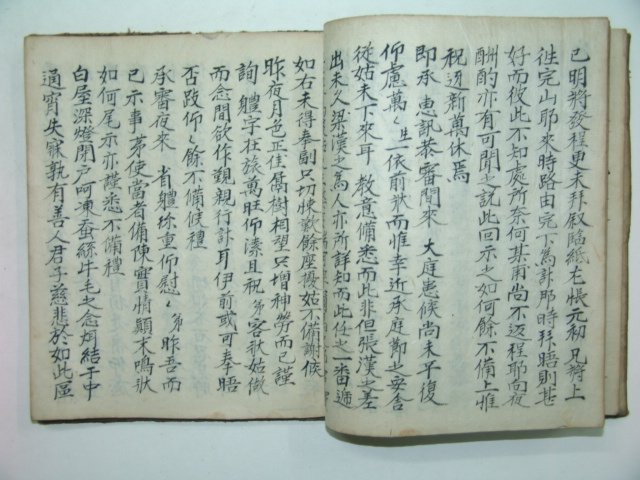 已明將發程更未拜叙臨紙尤悵元初兄將上
徃完山耶來時路由完下爲計耶時拜晤則甚
好而彼此不知處所奈何某甫尚不返程耶向夜
酬酌亦有可聞之説此回示之如何餘不備上惟
祝迓新萬休焉
即承 惠訊恭審間來 大庭患候尚未平復
仰慮萬〻生一依前狀而惟幸近承庭鄭之安舍
從姑未下來耳 教意備悉而此非但張漢之墓
出未久梁漢之爲人亦所詳知而此任之一番遞
如右未得奉副只切悚歎餘座擾姑不備謝候
昨夜月色正佳萬樹相望只增神勞而已謹
詢 軆字在旅萬旺仰溱且祝 弟客狀姑倣
而愈間欲作覲親行計耳伊前或可奉晤
否跂仰〻餘不備候禮
承審夜來 省軆珎重仰慰〻弟昨吾而
已示事茅使當者備陳實情顛末鳴狀
如何尾示亦謹悉不備禮
白屋深燈閉户呵凍蚕絲牛毛之愈焗結于中
通宵失寐孰有善人君子慈悲於如此區